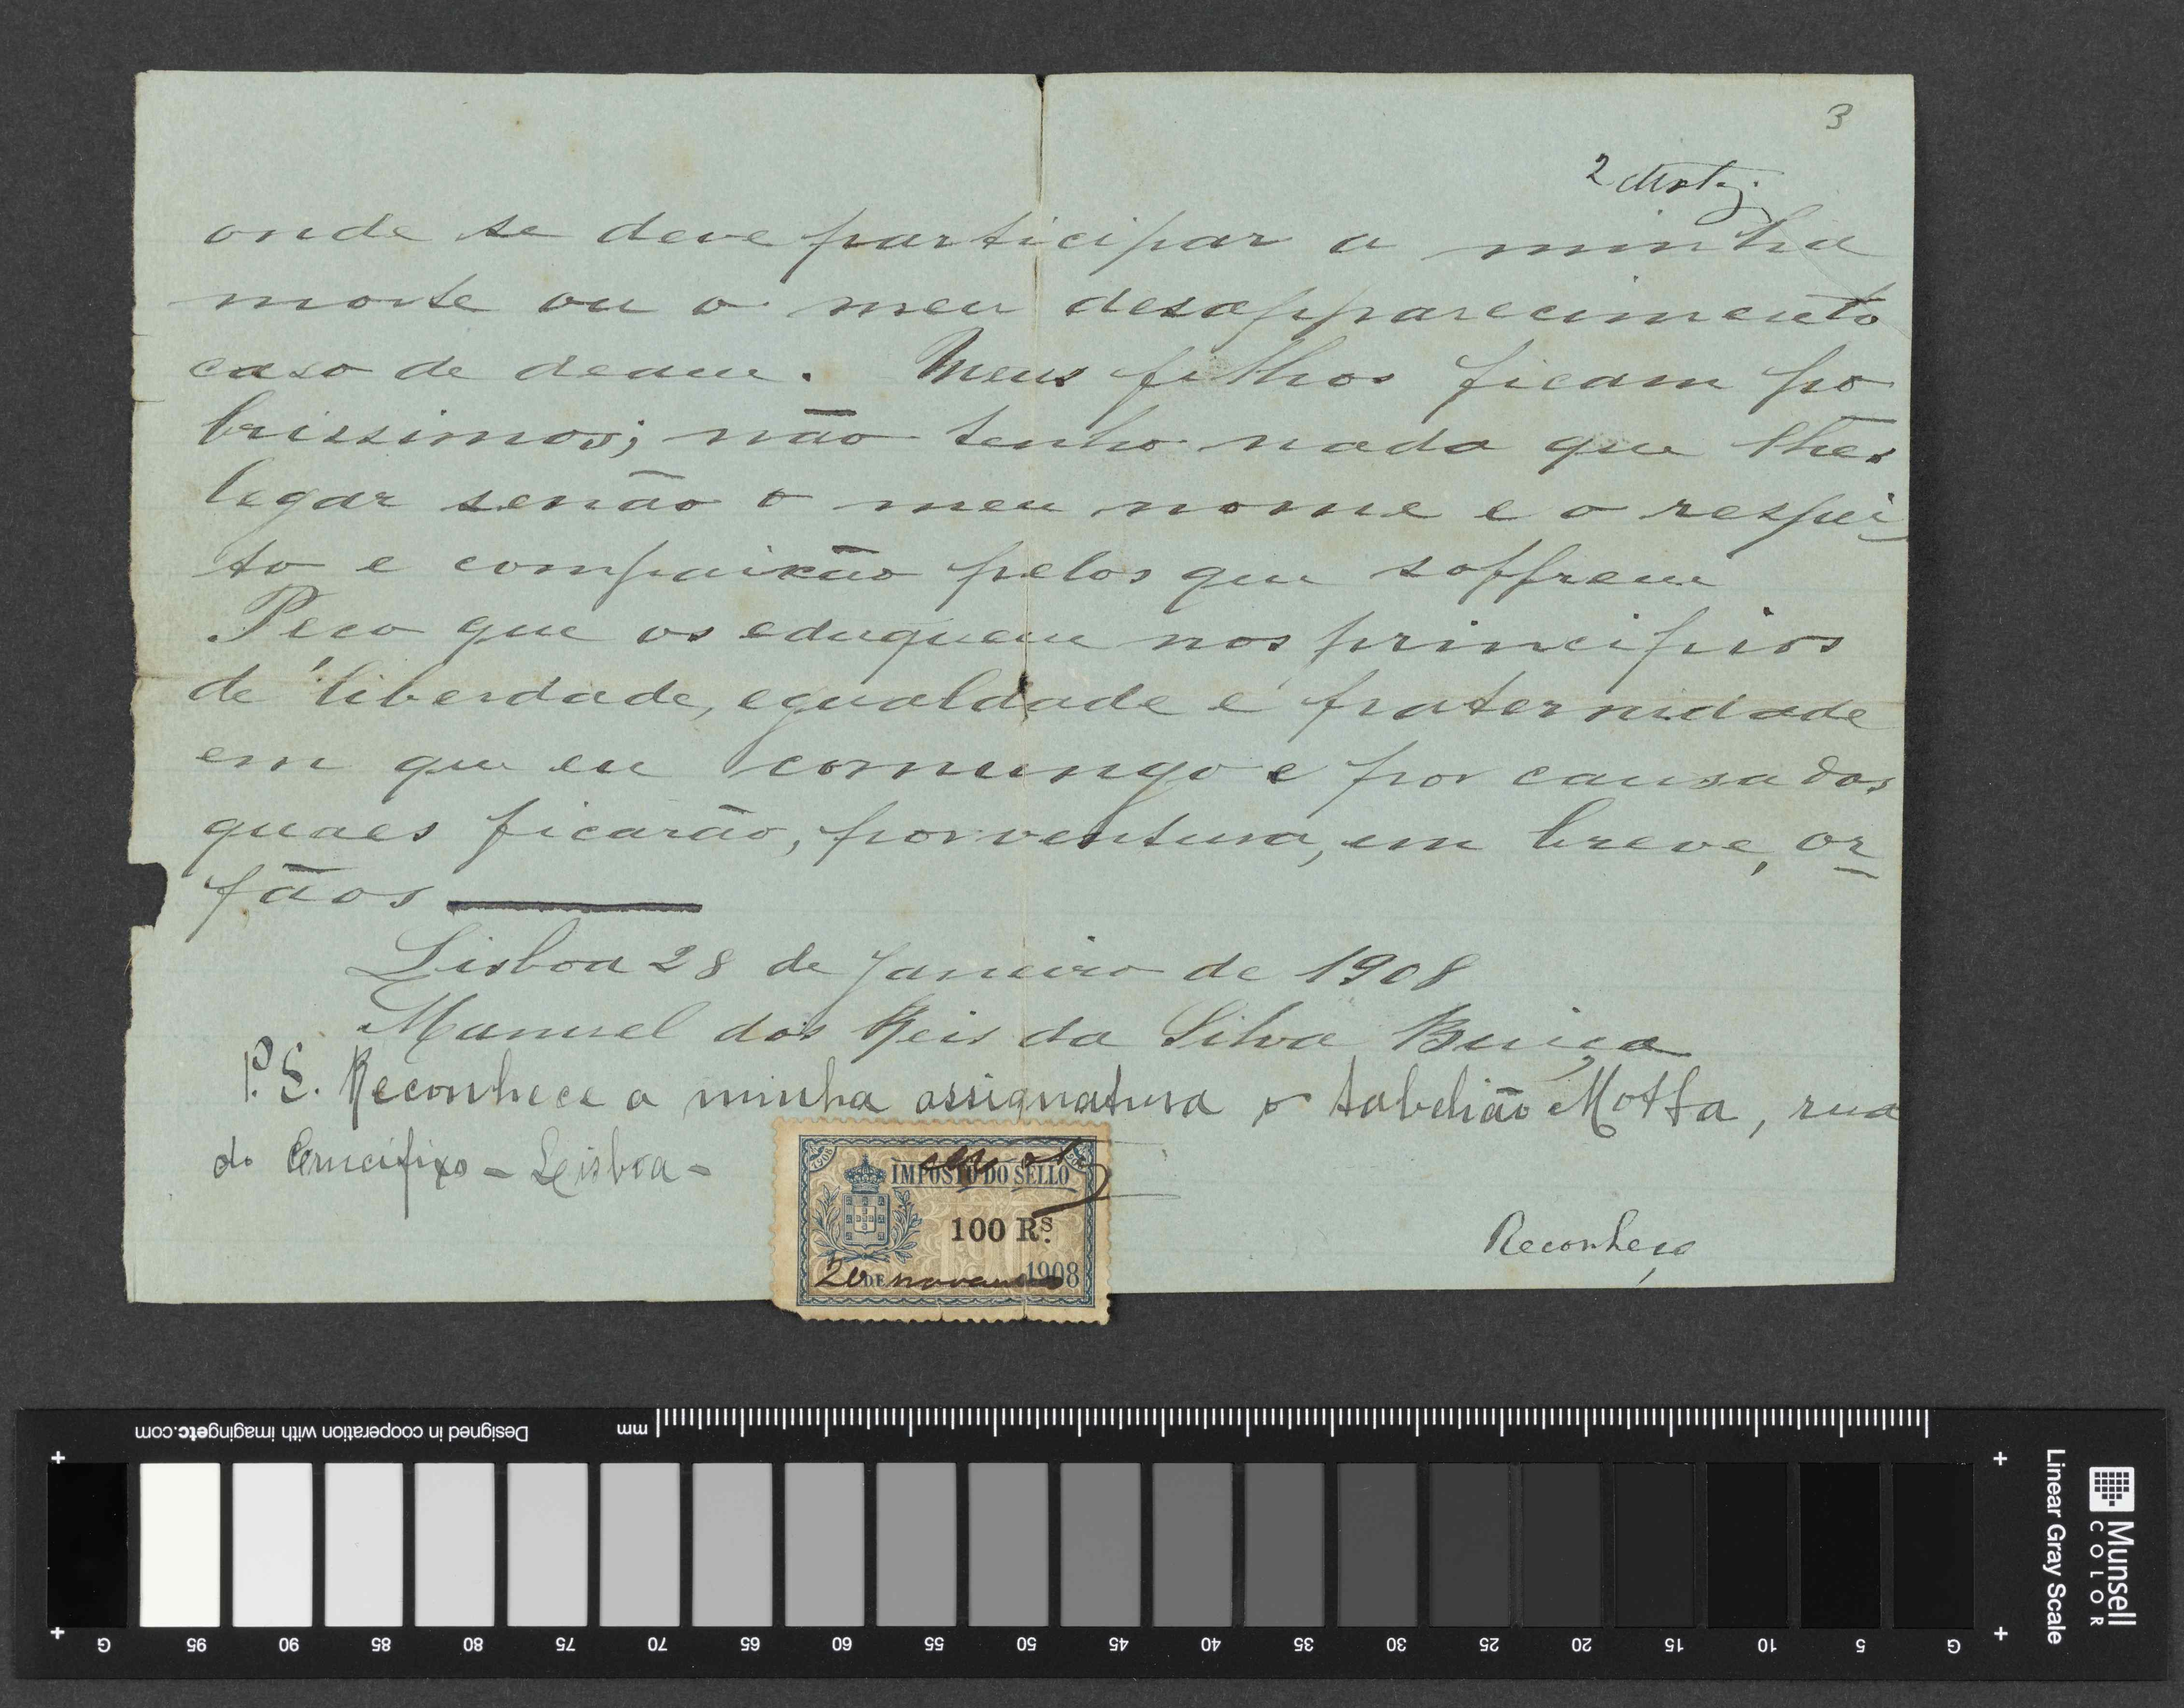 3
2
onde se deve participar a minha
morte ou o meu desapparecimento
caso se deem. Meus filhos ficam po
brissimos; não tenho nada que lhes
legar senão o meu nome e o respei
to e compaixão pelos que soffrem
Peço que os eduquem nos principios
de liberdade, egualdade e fraternidade
em que eu comungo e por causa dos
quaes ficarão, porventura, em breve, or
fãos
Lisboa 28 de Janeiro de 1908
Manuel dos Reis da Silva Buiça
P.S. Reconhece a minha assignatura o tabelião Motta, rua
do Crucifixo - Lisboa -
1908
IMPOSTO DO SELLO
100 Rs.
DE 1908
Reconheço
Designed in cooperation with imagingetc.com
mm
G 95 90 85 80 75 70 65 60 55 50 45 40 35 30 25 20 15 10 5 G
Linear Gray Scale
Munsell
COLOR